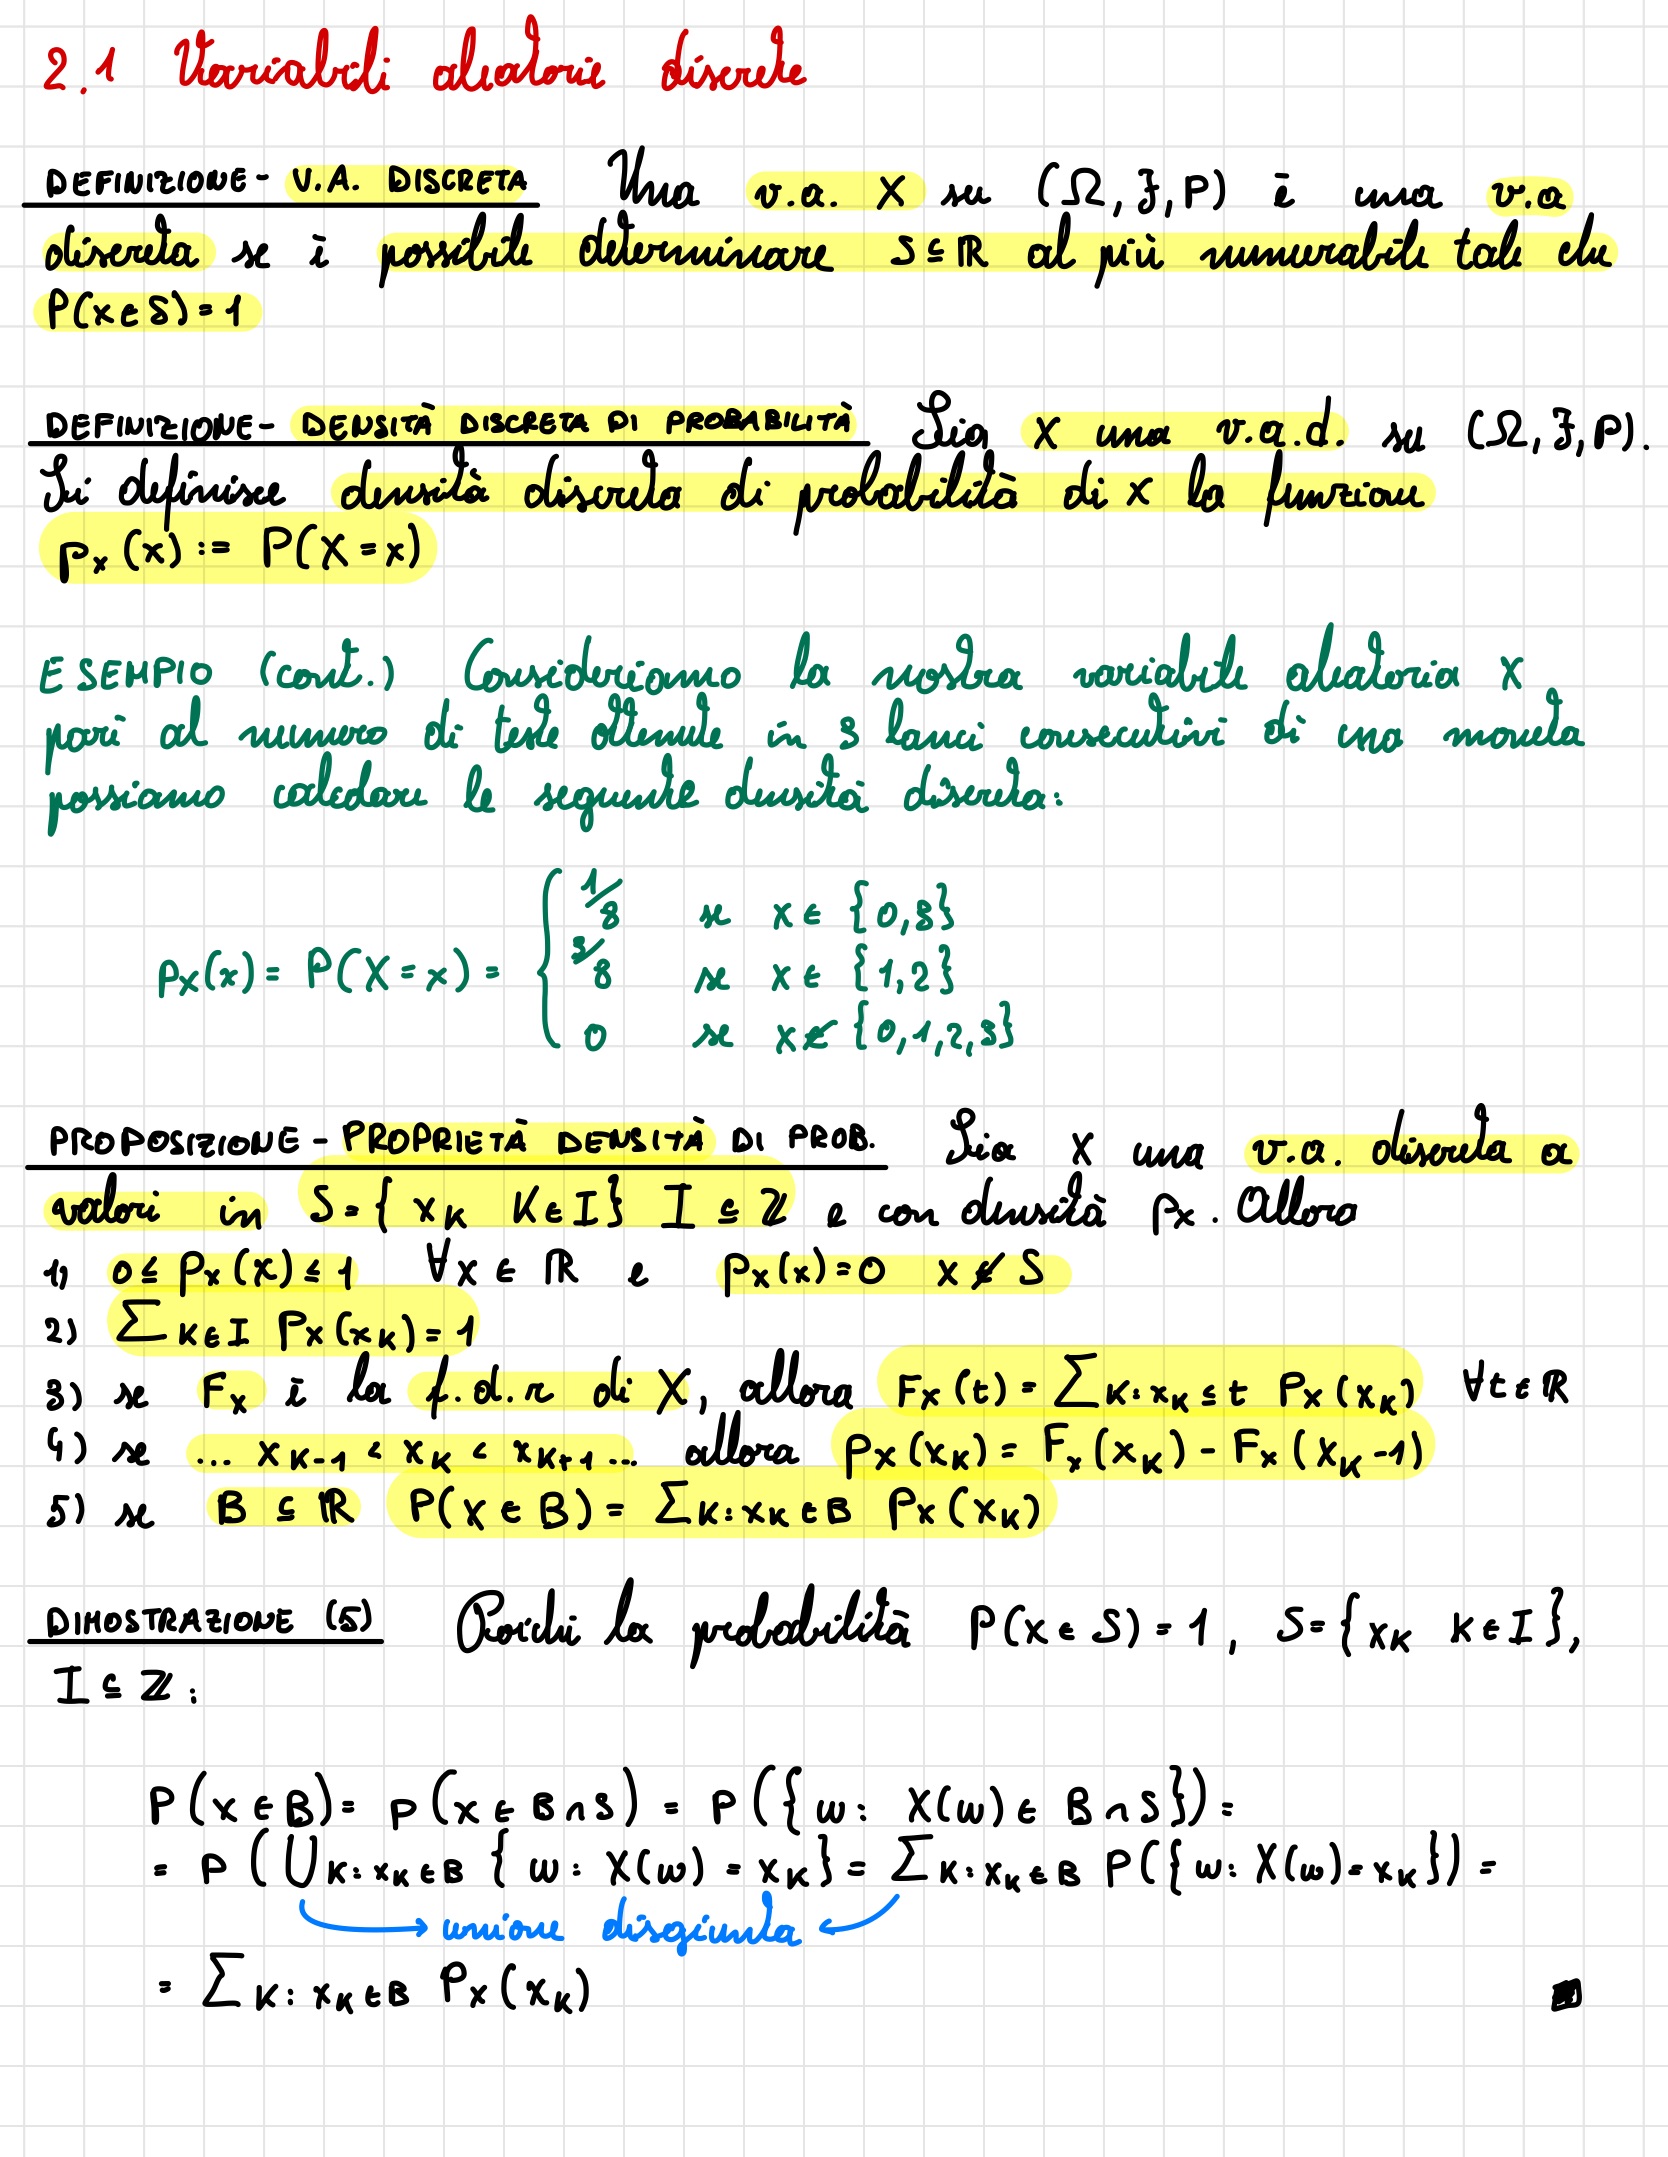 2.1 Variabili aleatorie discrete
DEFINIZIONE - V.A. DISCRETA Una v.a. X su (Ω, F, P) è una v.a
discreta se è possibile determinare S ⊆ ℝ al più numerabile tale che
P(X∈S) = 1
DEFINIZIONE - DENSITÀ DISCRETA DI PROBABILITÀ Sia X una v.a.d. su (Ω, F, P).
Si definisce densità discreta di probabilità di X la funzione
p_X(x) := P(X = x)
ESEMPIO (cont.) Consideriamo la nostra variabile aleatoria X
pari al numero di teste ottenute in 3 lanci consecutivi di una moneta
possiamo calcolare le seguente densità discreta:
1/8 se x ∈ {0,3}
p_X(x) = P(X = x) = { 3/8 se x ∈ {1,2}
0 se x ∉ {0,1,2,3}
PROPOSIZIONE - PROPRIETÀ DENSITÀ DI PROB. Sia X una v.a. discreta a
valori in S = { x_K K∈I} I ⊆ ℤ e con densità p_X. Allora
1) 0 ≤ p_X(x) ≤ 1 ∀x ∈ ℝ e p_X(x) = 0 x ∉ S
2) ∑_{K∈I} p_X(x_K) = 1
3) se F_X è la f.d.r di X, allora F_X(t) = ∑_{K: x_K ≤ t} p_X(x_K) ∀t∈ℝ
4) se ... x_{K-1} < x_K < x_{K+1} ... allora p_X(x_K) = F_X(x_K) - F_X(x_{K-1})
5) se B ⊆ ℝ P(X ∈ B) = ∑_{K: x_K ∈ B} p_X(x_K)
DIMOSTRAZIONE (5) Poichè la probabilità P(X∈S) = 1, S = { x_K K∈I},
I ⊆ ℤ:
P(X∈B) = P(X∈B∩S) = P({ω: X(ω) ∈ B∩S}) =
= P(⋃_{K: x_K∈B} {ω: X(ω) = x_K} = ∑_{K: x_K∈B} P({ω: X(ω) = x_K}) =
unione disgiunta
= ∑_{K: x_K∈B} p_X(x_K)